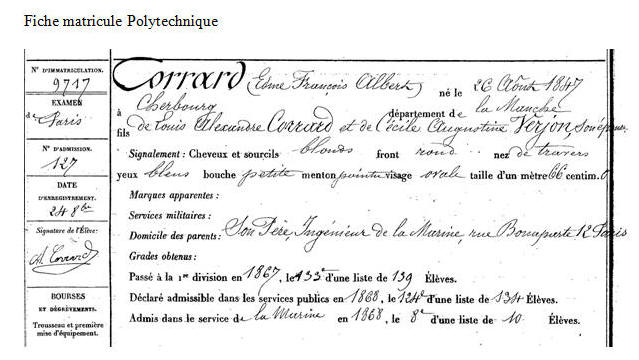 Fiche matricule Polytechnique
N° D'IMMATRICULATION.
9717
EXAMEN
de Paris
N° D'ADMISSION.
127
DATE
D'ENREGISTREMENT.
24 8bre
Signature de l'Élève:
A. Corrard
BOURSES
ET DÉGRÈVEMENTS.
Trousseau et première
mise d'équipement.
Corrard (Edme François Albert) né le 26 Août 1847
à Cherbourg département de la Manche
fils de Louis Alexandre Corrard et de Cécile Augustine Verjon, son épouse
Signalement: Cheveux et sourcils blonds front rond nez de travers
yeux bleus bouche petite menton pointu visage ovale taille d'un mètre 66 centim. 0
Marques apparentes :
Services militaires :
Domicile des parents : Son Père, Ingénieur de la Marine, rue Bonaparte 12 Paris
Grades obtenus :
Passé à la 1re division en 1867, le 133e d'une liste de 139 Élèves.
Déclaré admissible dans les services publics en 1868, le 124e d'une liste de 134 Élèves.
Admis dans le service de la Marine en 1868, le 8e d'une liste de 10 Élèves.